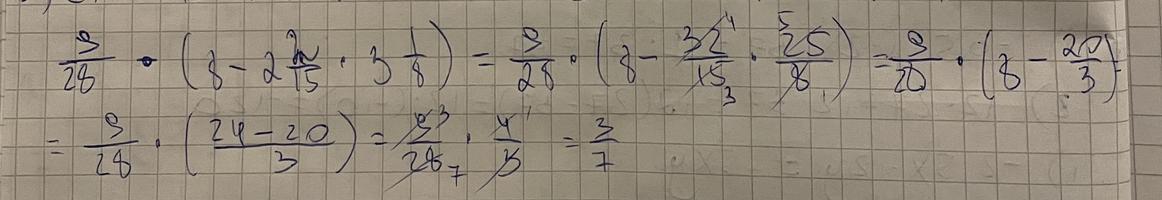 9/28 · (8 - 2 2/15 · 3 1/8) = 9/28 · (8 - 32/15 · 25/8) = 9/28 · (8 - 20/3)
= 9/28 · ((24 - 20)/3) = 9/28 · 4/3 = 3/7